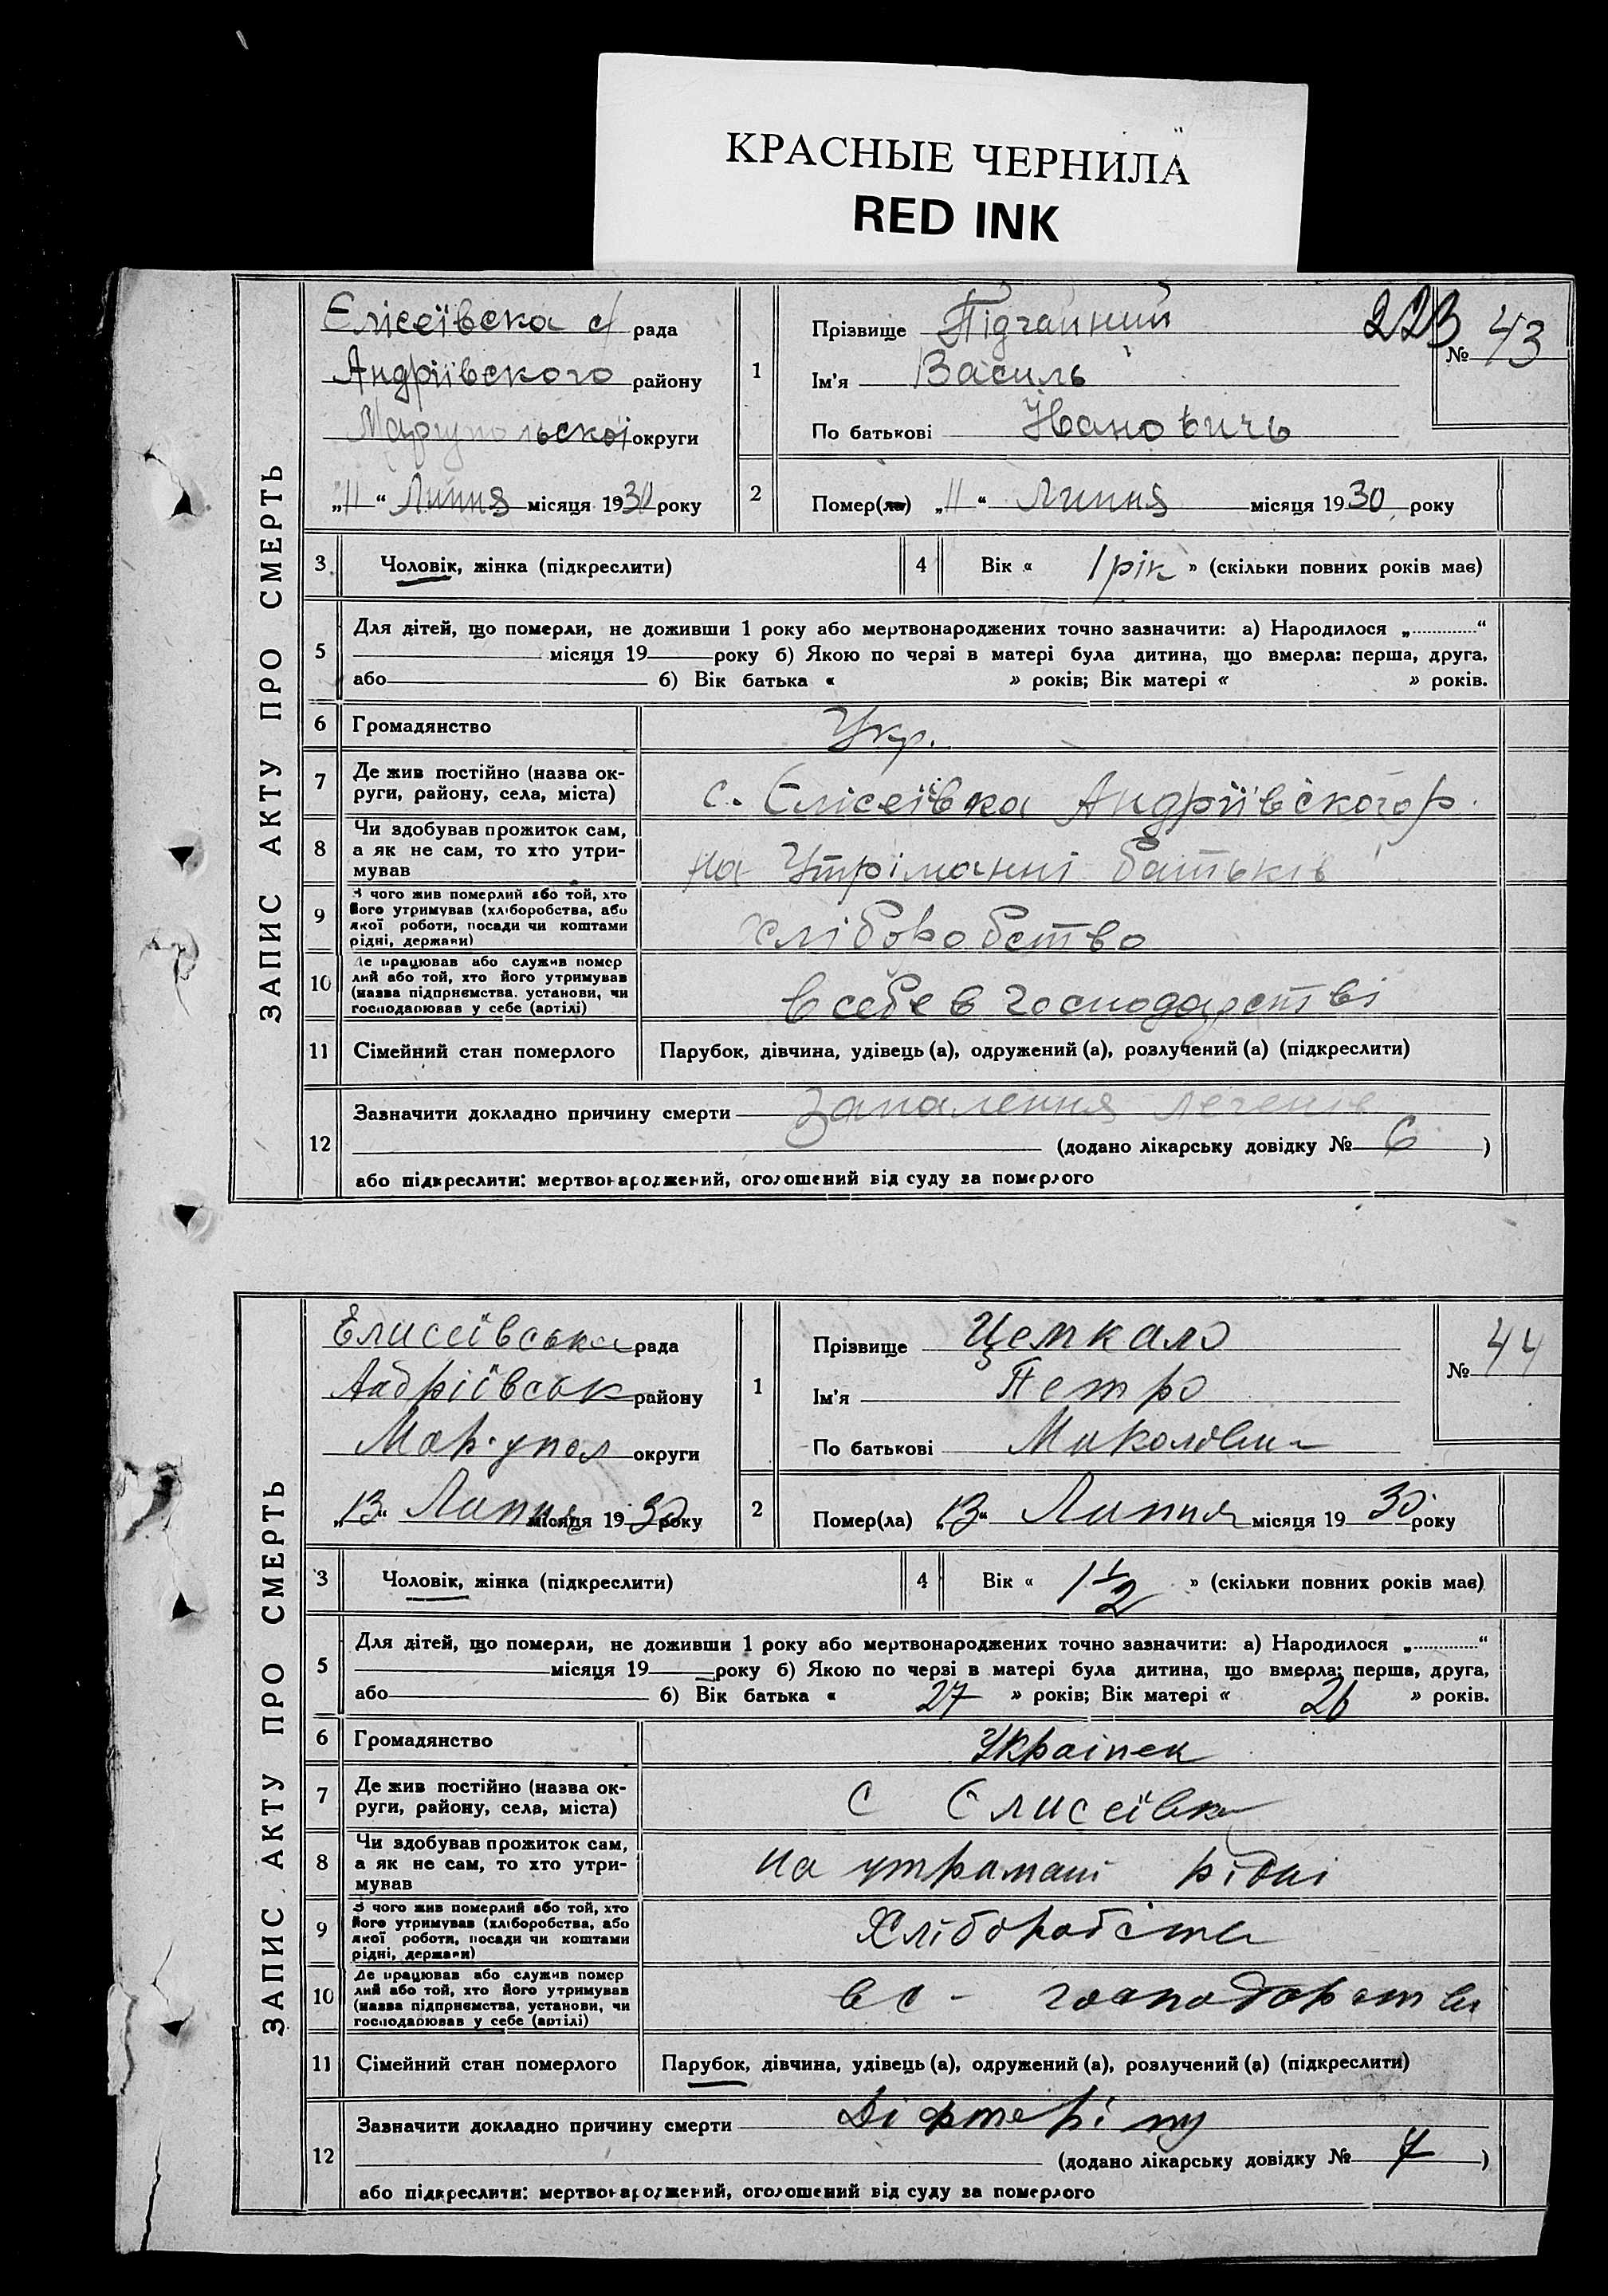 КРАСНЫЕ ЧЕРНИЛА
RED INK
ЗАПИС АКТУ ПРО СМЕРТЬ
Єлісеївска с/ рада
Андріївского району
Маріупольскої округи
„11“ Липня місяця 1930 року
1
Прізвище Підгайний
Ім'я Василь
По батькові Йвановичь
223
№ 43
2
Помер(ла) „11“ Липня місяця 1930 року
3 Чоловік, жінка (підкреслити)
4 Вік « 1 рік » (скільки повних років має)
5 Для дітей, що померли, не доживши 1 року або мертвонароджених точно зазначити: а) Народилося „............“
місяця 19 року б) Якою по черзі в матері була дитина, що вмерла: перша, друга,
або б) Вік батька « » років; Вік матері « » років.
6 Громадянство Укр.
7 Де жив постійно (назва ок-
руги, району, села, міста) с. Єлісеївка Андріївского р.
8 Чи здобував прожиток сам,
а як не сам, то хто утри-
мував
на Утріманні батьків
9 З чого жив померлий або той, хто
його утримував (хліборобства, або
якої роботи, посади чи коштами
рідні, держави)
хліборобство
10 Де працював або служив помер
лий або той, хто його утримував
(назва підприємства, установи, чи
господарював у себе (артілі)
в себе в господарстві
11 Сімейний стан померлого Парубок, дівчина, удівець (а), одружений (а), розлучений (а) (підкреслити)
12 Зазначити докладно причину смерти Запалення легенів
(додано лікарську довідку № 6 )
або підкреслити: мертвонароджений, оголошений від суду за померлого
ЗАПИС АКТУ ПРО СМЕРТЬ
Елисеївська рада
Андріївськ району
Маріупол округи
„13“ Липня місяця 1930 року
1
Прізвище Цемкало
Ім'я Петро
По батькові Миколович
№ 44
2
Помер(ла) „13“ Липня місяця 1930 року
3 Чоловік, жінка (підкреслити)
4 Вік « 1 1/2 » (скільки повних років має)
5 Для дітей, що померли, не доживши 1 року або мертвонароджених точно зазначити: а) Народилося „............“
місяця 19 року б) Якою по черзі в матері була дитина, що вмерла: перша, друга,
або б) Вік батька « 27 » років; Вік матері « 26 » років.
6 Громадянство Українец
7 Де жив постійно (назва ок-
руги, району, села, міста) с Єлисеївка
8 Чи здобував прожиток сам,
а як не сам, то хто утри-
мував
на утримані рідні
9 З чого жив померлий або той, хто
його утримував (хліборобства, або
якої роботи, посади чи коштами
рідні, держави)
Хлібо­робства
10 Де працював або служив помер
лий або той, хто його утримував
(назва підприємства, установи, чи
господарював у себе (артілі)
в с - господарстві
11 Сімейний стан померлого Парубок, дівчина, удівець (а), одружений (а), розлучений (а) (підкреслити)
12 Зазначити докладно причину смерти Діфтеріту
(додано лікарську довідку № 7 )
або підкреслити: мертвонароджений, оголошений від суду за померлого